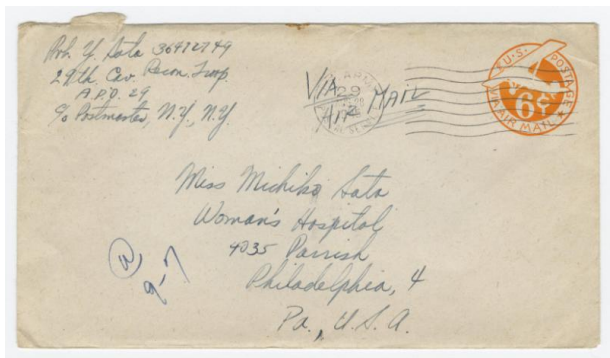 Y. Sato 36912749
29th. Cav. Recon. Troop.
A.P.O. 29
c/o Postmaster, N.Y., N.Y.
VIA
AIR MAIL
ARMY
29
U.S. POSTAGE
6¢
VIA AIR MAIL
Miss Michiko Sato
Woman's Hospital
4035 Parrish
Philadelphia, 4
Pa., U.S.A.
a
9-7